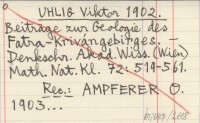 UHLIG Viktor 1902.
Beiträge zur Geologie des
Fatra-Krivángebirges. —
Denkschr. Akad. Wiss. (Wien)
Math. Nat. Kl. 72: 519-561.
Res.: AMPFERER O.
1903...